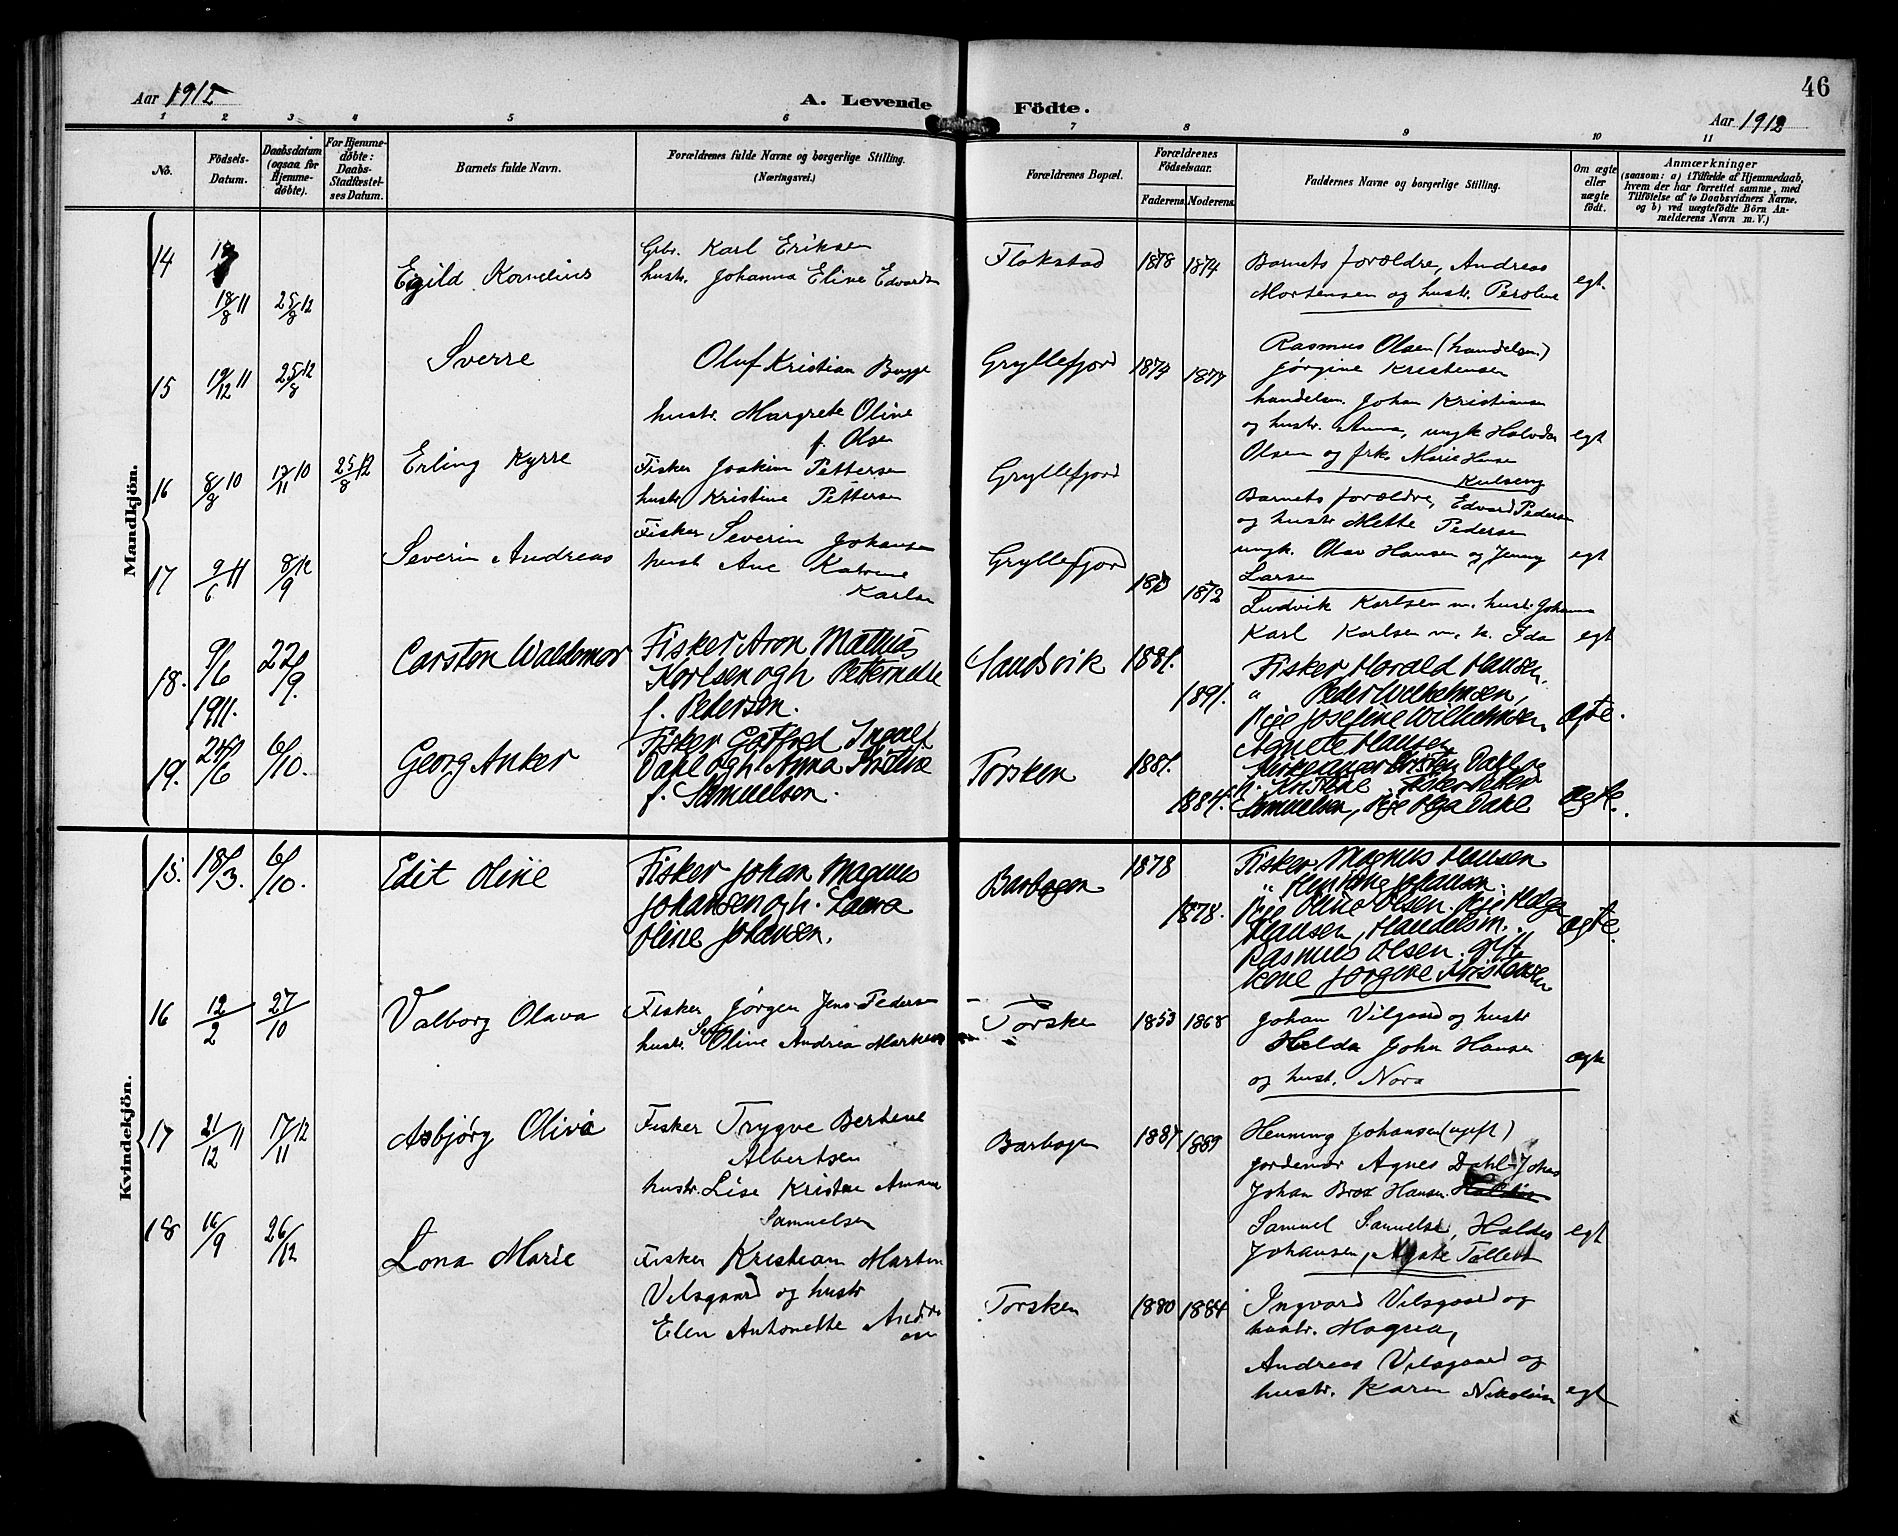 46
Aar 1912
A. Levende Födte.
Aar 1912
1 2 3 4 5 6 7 8 9 10 11
No.
Födsels-
Datum.
Daabsdatum
(ogsaa for
Hjemme-
döbte).
For Hjemme-
döbte:
Daabs-
Stadfæstel-
ses Datum.
Barnets fulde Navn.
Forældrenes fulde Navne og borgerlige Stilling.
(Næringsvei.)
Forældrenes Bopæl.
Forældrenes
Födselsaar.
Faderens. Moderens.
Faddernes Navne og borgerlige Stilling.
Om ægte
eller
uægte
født.
Anmærkninger
(saasom: a) i Tilfælde af Hjemmedaab,
hvem der har forrettet samme, med
Tilføielse af to Daabsvidners Navne,
og b) ved uægtefödte Börn An-
melderens Navn m. V.)
Mandkjön.
14
18/8 11
25/8 12
Egild Kornelius
Gbr. Karl Eriksen
hustr. Johanna Eline Edvardsn
Flakstad
1878 1874
Barnets forældre, Andreas
Mortensen og hustr. Peroline
egt.
15
19/12 11
25/8 12
Sverre
Oluf Kristian Bugge
hustr. Margrete Oline
f. Olsen
Gryllefjord
1874 1877
Rasmus Olsen (handelsm)
Jörgine Kristensen
handelsm. Johan Kristiansen
og hustr. Anna, ungk Halvdan
Olsen og frk. Marie Hansen
Kulseng
egt
16
8/8 10
17/11 10
25/8 12
Erling Kyrre
Fisker Joakim Pettersen
hustr Kristine Pettersen
Gryllefjord
Barnets forældre, Edvard Pedersn
og hustr Mette Pedersen
ungk. Olav Hansen og Jenny
Larsen
egt
17
9/6 11
8/9 12
Severin Andreas
Fisker Severin Johansen
hustr Ane Katrine
Karlsen
Gryllefjord
1872
Ludvik Karlsen m. hust. Johanna
Karl Karlsen m. h. Ida
egt
18.
9/6
1911.
22/9.
Carsten Waldemar
Fisker Aron Mathias
Karlsen og h. Petternelle
f. Pedersen.
Sandsvik
1881.
1891.
Fisker Harald Hansen.
" Peder Wilhelmsen,
Pige Josefine Wilhelmsen,
Agnete Hansen
ægte.
19.
24/6
6/10.
Georg Anker
Fisker Gotfred Ingvald
Dahl og h. Anna Kristine
f. Samuelsen.
Torsken
1881.
1884.
Kirkesanger Torsten Dahl og
h. Kristine, Fisker
Samuelsen, Pige Olga Dahl
ægte.
Kvindekjön.
15.
18/3.
6/10.
Edit Oline
Fisker Johan Magnus
Johansen og h. Laura
Oline Johansen.
Barbogen
1878
1878.
Fisker Magnus Hansen
" Henning Johansen.
Pige Oline Olsen. Pige Helga
Hansen, Handelsm.
Rasmus Olsen. gift
kone Jorgine Kristensen
ægte.
16
12/2
27/10
Valborg Olava
Fisker Jörgen Jens Pedersen
hustr. Oline Andrea Markusn
Torsken
1853 1868
Johan Vilgaard og hustr
Helda John Hansen
og hust. Nora
ægte
17
21/12 11
17/11 12
Asbjørg Oliva
Fisker Trygve Bertene
Albertsen
hustr. Lise Kristine Amanda
Samuelsen
Barbogen
1887 1889
Henning Johansen (ugift)
jordemor Agnes Dahl
Johan Brox Hansen.
Samuel Samuelsen, Haldes
Johansen, Agate Tollefs
egt
18
16/9
26/12
Lona Marie
Fisker Kristian Martin
Vilsgaard og hustr
Elen Antonette Andre
asen
Torsken
1880 1884
Ingvard Vilsgaard og
hustr. Magna,
Andreas Vilsgaard og
hustr. Karen Nikolaisen
egt